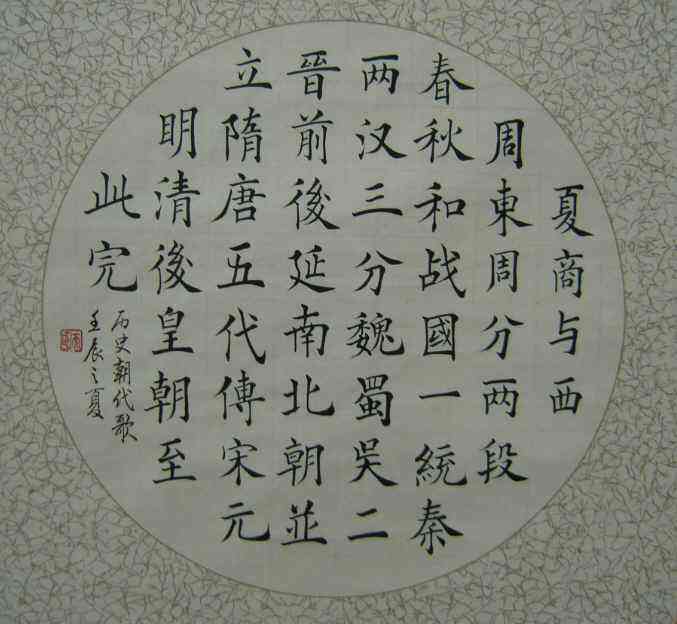 夏商与西
周東周分两段
春秋和战國一統秦
两汉三分魏蜀吳二
晉前後延南北朝並
立隋唐五代傳宋元
明清後皇朝至
此完
历史朝代歌
壬辰之夏